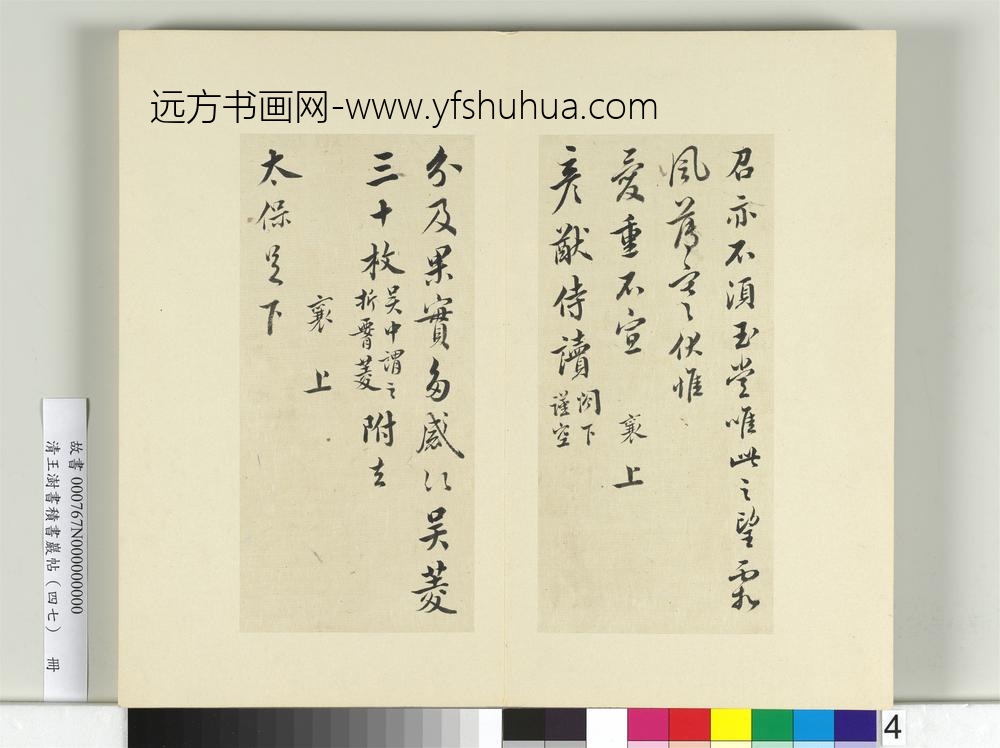 远方书画网-www.yfshuhua.com
召亦不須玉堂唯此之望霜
風薄寒伏惟
愛重不宣 襄上
彦猷侍讀 閣下 謹空
分及果實多感以吳菱
三十枚 吳中謂之 折腰菱 附去
襄上
太保足下
故書 000767N000000000
清王澍書積書巖帖(四七) 冊
4